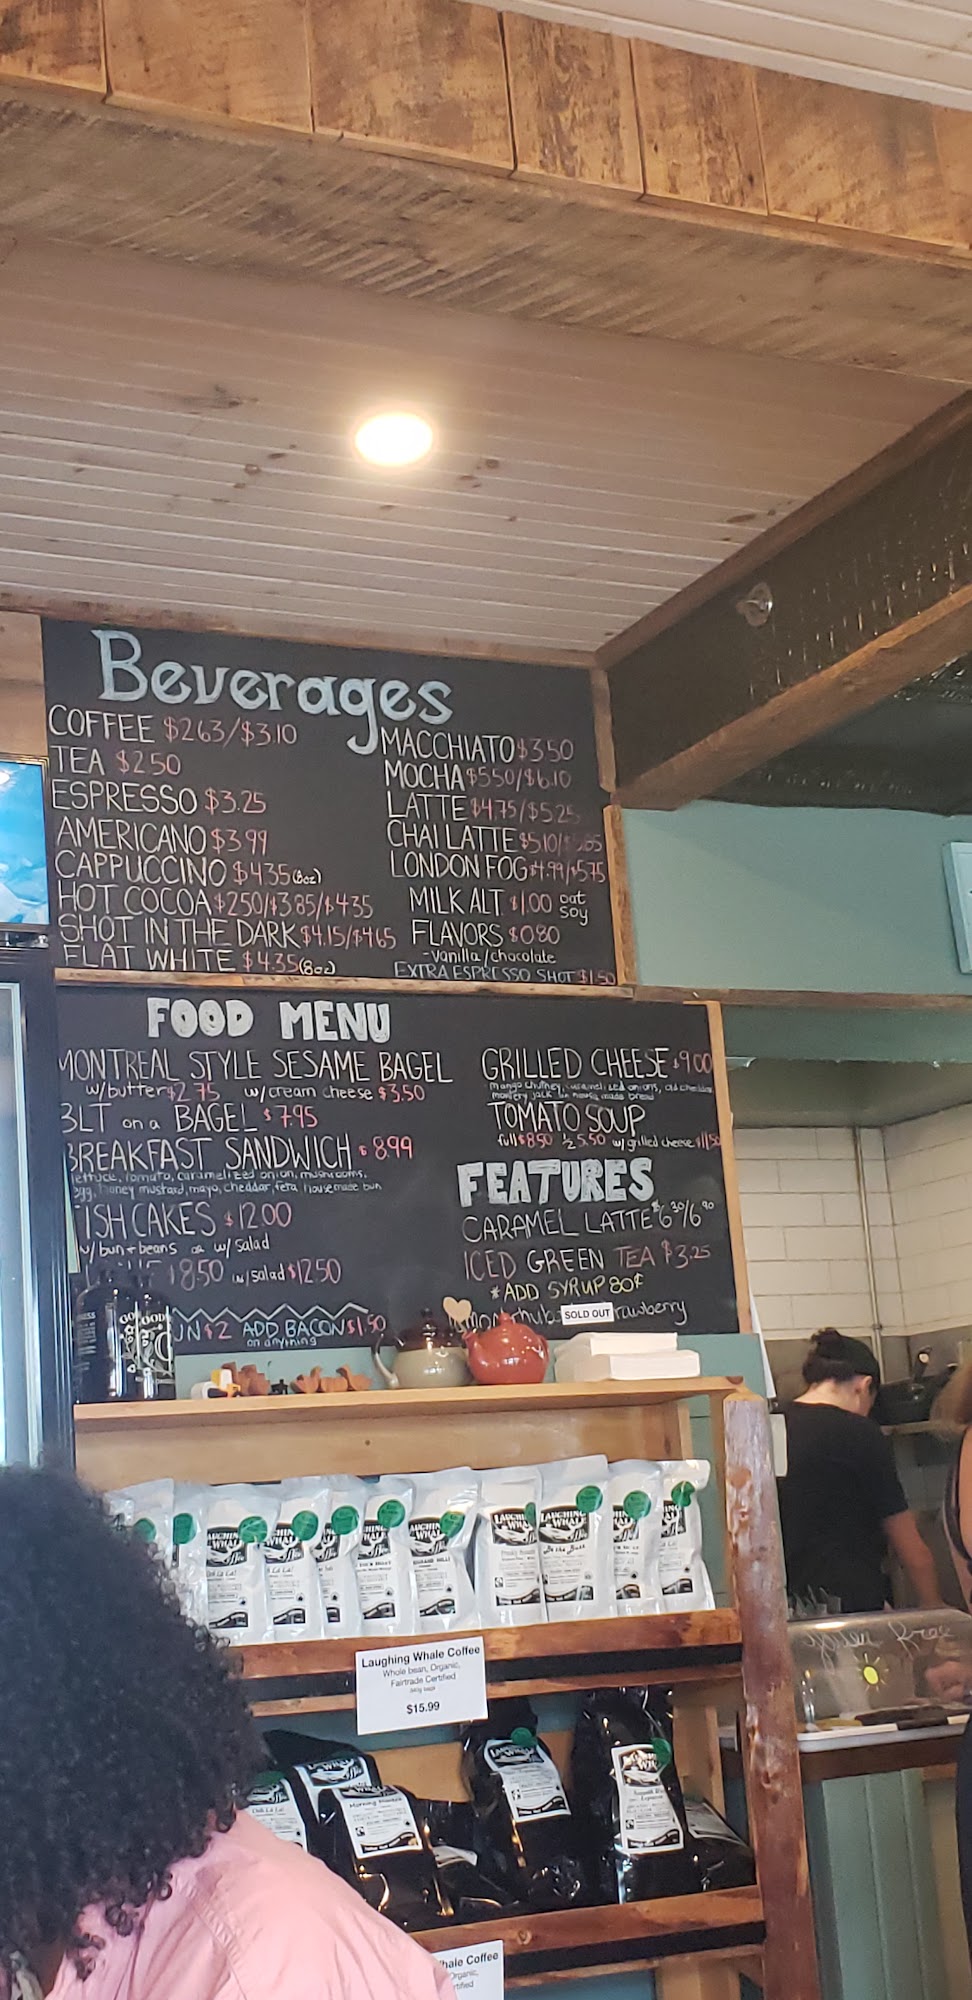 Beverages
COFFEE $2.63/$3.10
TEA $2.50
ESPRESSO $3.25
AMERICANO $3.99
CAPPUCCINO $4.35 (8oz)
HOT COCOA $2.50/$3.85/$4.35
SHOT IN THE DARK $4.15/$4.65
FLAT WHITE $4.35 (8oz)
MACCHIATO $3.50
MOCHA $5.50/$6.10
LATTE $4.75/$5.25
CHAI LATTE $5.10/
LONDON FOG $4.99/$5.75
MILK ALT $1.00 oat
soy
FLAVORS $0.80
-vanilla/chocolate
EXTRA ESPRESSO SHOT $1.50
FOOD MENU
MONTREAL STYLE SESAME BAGEL
w/butter $2.75 w/cream cheese $3.50
BLT on a BAGEL $7.95
BREAKFAST SANDWICH $8.99
lettuce, tomato, caramelized onion, mushrooms,
egg, honey mustard, mayo, cheddar, feta, housemade bun
FISH CAKES $12.00
w/ bun + beans or w/ salad
$8.50 w/salad $12.50
$2 ADD BACON $1.50
on anything
GRILLED CHEESE $9.00
mango chutney, caramelized onions, old cheddar
montery jack on house made bread
TOMATO SOUP
full $8.50 ½ 5.50 w/ grilled cheese $11.50
FEATURES
CARAMEL LATTE $6.30/6.90
ICED GREEN TEA $3.25
*ADD SYRUP 80¢
SOLD OUT
LAUGHING
WHALE
Coffee
Laughing Whale Coffee
Whole bean, Organic,
Fairtrade Certified
$15.99
Whale Coffee
Organic,